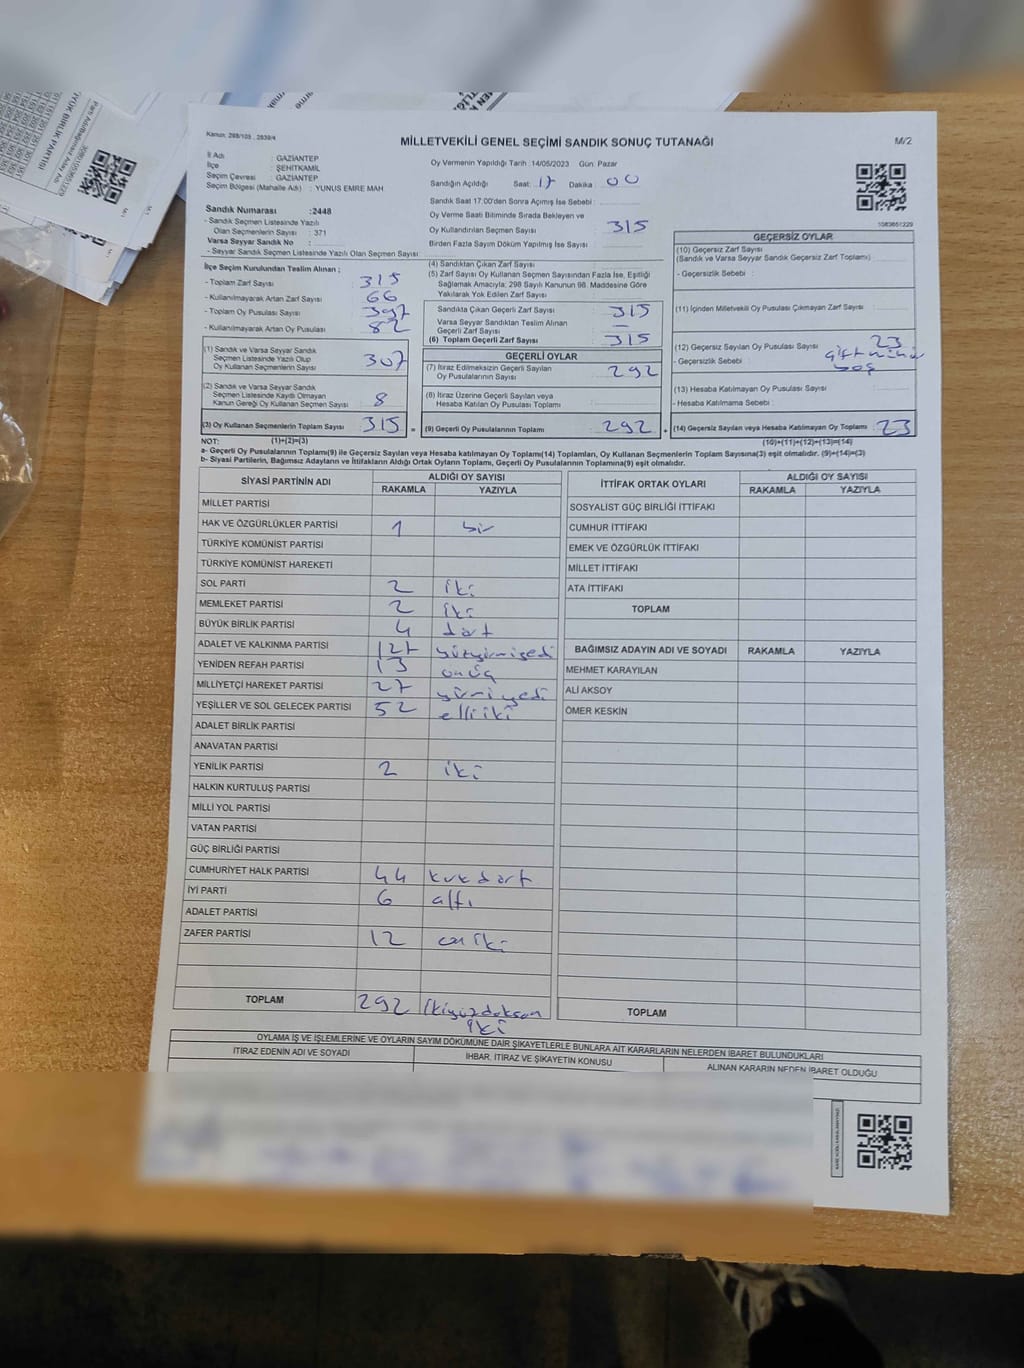 Kanun: 298/105 , 2839/4
MİLLETVEKİLİ GENEL SEÇİMİ SANDIK SONUÇ TUTANAĞI
M/2
İl Adı : GAZİANTEP
İlçe : ŞEHİTKAMİL
Seçim Çevresi : GAZİANTEP
Seçim Bölgesi (Mahalle Adı) : YUNUS EMRE MAH
Oy Vermenin Yapıldığı Tarih :14/05/2023 Gün: Pazar
Sandığın Açıldığı Saat: 17 Dakika : 00
Sandık Saat 17.00'den Sonra Açılmış İse Sebebi :
Oy Verme Saati Bitiminde Sırada Bekleyen ve
Oy Kullandırılan Seçmen Sayısı : 315
Birden Fazla Sayım Döküm Yapılmış İse Sayısı :
1083651229
Sandık Numarası :2448
- Sandık Seçmen Listesinde Yazılı
Olan Seçmenlerin Sayısı : 371
Varsa Seyyar Sandık No :
- Seyyar Sandık Seçmen Listesinde Yazılı Olan Seçmen Sayısı
İlçe Seçim Kurulundan Teslim Alınan ;
- Toplam Zarf Sayısı : 315
- Kullanılmayarak Artan Zarf Sayısı : 66
- Toplam Oy Pusulası Sayısı : 397
- Kullanılmayarak Artan Oy Pusulası : 82
(1) Sandık ve Varsa Seyyar Sandık
Seçmen Listesinde Yazılı Olup
Oy Kullanan Seçmenlerin Sayısı : 307
(2) Sandık ve Varsa Seyyar Sandık
Seçmen Listesinde Kayıtlı Olmayan
Kanun Gereği Oy Kullanan Seçmen Sayısı : 8
(3) Oy Kullanan Seçmenlerin Toplam Sayısı : 315
(4) Sandıktan Çıkan Zarf Sayısı :
(5) Zarf Sayısı Oy Kullanan Seçmen Sayısından Fazla İse, Eşitliği
Sağlamak Amacıyla; 298 Sayılı Kanunun 98. Maddesine Göre
Yakılarak Yok Edilen Zarf Sayısı :
Sandıkta Çıkan Geçerli Zarf Sayısı : 315
Varsa Seyyar Sandıktan Teslim Alınan
Geçerli Zarf Sayısı : —
(6) Toplam Geçerli Zarf Sayısı : 315
GEÇERLİ OYLAR
(7) İtiraz Edilmeksizin Geçerli Sayılan
Oy Pusulalarının Sayısı : 292
(8) İtiraz Üzerine Geçerli Sayılan veya
Hesaba Katılan Oy Pusulası Toplamı :
= (9) Geçerli Oy Pusulalarının Toplamı : 292
GEÇERSİZ OYLAR
(10) Geçersiz Zarf Sayısı
(Sandık ve Varsa Seyyar Sandık Geçersiz Zarf Toplamı) :
- Geçersizlik Sebebi :
(11) İçinden Milletvekili Oy Pusulası Çıkmayan Zarf Sayısı :
(12) Geçersiz Sayılan Oy Pusulası Sayısı : 23
- Geçersizlik Sebebi : boş
(13) Hesaba Katılmayan Oy Pusulası Sayısı :
- Hesaba Katılmama Sebebi :
+ (14) Geçersiz Sayılan veya Hesaba Katılmayan Oy Toplamı : 23
NOT: (1)+(2)=(3) (10)+(11)+(12)+(13)=(14)
a- Geçerli Oy Pusulalarının Toplamı(9) ile Geçersiz Sayılan veya Hesaba katılmayan Oy Toplamı(14) Toplamları, Oy Kullanan Seçmenlerin Toplam Sayısına(3) eşit olmalıdır. (9)+(14)=(3)
b- Siyasi Partilerin, Bağımsız Adayların ve İttifakların Aldığı Ortak Oyların Toplamı, Geçerli Oy Pusulalarının Toplamına(9) eşit olmalıdır.
SİYASİ PARTİNİN ADI ALDIĞI OY SAYISI
RAKAMLA YAZIYLA
MİLLET PARTİSİ
HAK VE ÖZGÜRLÜKLER PARTİSİ 1 bir
TÜRKİYE KOMÜNİST PARTİSİ
TÜRKİYE KOMÜNİST HAREKETİ
SOL PARTİ 2 iki
MEMLEKET PARTİSİ 2 iki
BÜYÜK BİRLİK PARTİSİ 4 dört
ADALET VE KALKINMA PARTİSİ 127 yüzyirmiyedi
YENİDEN REFAH PARTİSİ 13 onüç
MİLLİYETÇİ HAREKET PARTİSİ 27 yirmiyedi
YEŞİLLER VE SOL GELECEK PARTİSİ 52 elliiki
ADALET BİRLİK PARTİSİ
ANAVATAN PARTİSİ
YENİLİK PARTİSİ 2 iki
HALKIN KURTULUŞ PARTİSİ
MİLLİ YOL PARTİSİ
VATAN PARTİSİ
GÜÇ BİRLİĞİ PARTİSİ
CUMHURİYET HALK PARTİSİ 44 kırkdört
İYİ PARTİ 6 altı
ADALET PARTİSİ
ZAFER PARTİSİ 12 oniki
TOPLAM 292 ikiyüzdoksan
iki
İTTİFAK ORTAK OYLARI ALDIĞI OY SAYISI
RAKAMLA YAZIYLA
SOSYALİST GÜÇ BİRLİĞİ İTTİFAKI
CUMHUR İTTİFAKI
EMEK VE ÖZGÜRLÜK İTTİFAKI
MİLLET İTTİFAKI
ATA İTTİFAKI
TOPLAM
BAĞIMSIZ ADAYIN ADI VE SOYADI RAKAMLA YAZIYLA
MEHMET KARAYILAN
ALİ AKSOY
ÖMER KESKİN
TOPLAM
OYLAMA İŞ VE İŞLEMLERİNE VE OYLARIN SAYIM DÖKÜMÜNE DAİR ŞİKAYETLERLE BUNLARA AİT KARARLARIN NELERDEN İBARET BULUNDUKLARI
İTİRAZ EDENİN ADI VE SOYADI İHBAR, İTİRAZ VE ŞİKAYETİN KONUSU ALINAN KARARIN NEDEN İBARET OLDUĞU